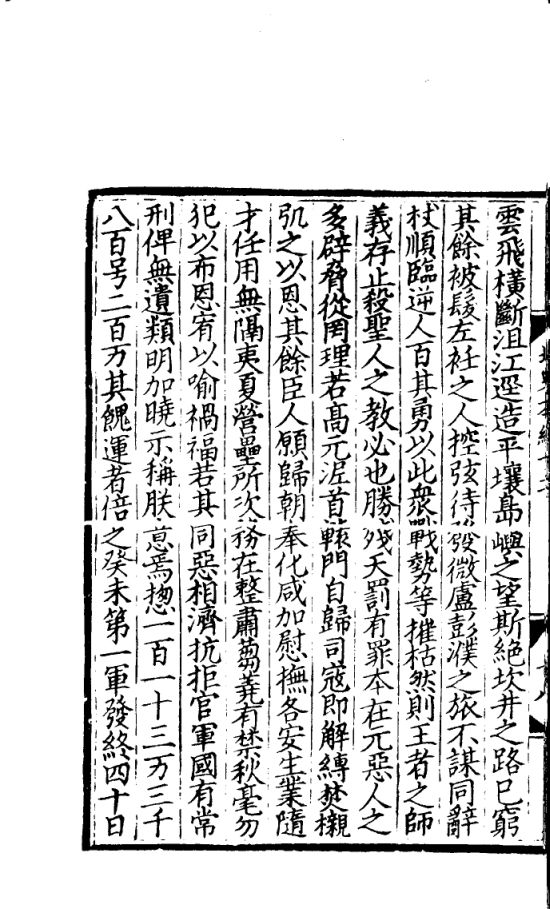 雲飛橫斷沮江逕造平壤島嶼之望斯絶坎井之路已窮
其餘被髮左衽之人控弦待發微盧彭濮之旅不謀同辭
杖順臨逆人百其勇以此衆戰勢等摧枯然則王者之師
義存止殺聖人之教必也勝殘天罰有罪本在元惡人之
多辟脅從罔理若髙元泥首轅門自歸司寇即解縛焚櫬
弘之以恩其餘臣人願歸朝奉化咸加慰撫各安生業隨
才任用無隔夷夏營壘所次務在整肅芻蕘有禁秋毫勿
犯以布恩宥以喻禍福若其同惡相濟抗拒官軍國有常
刑俾無遺類明加曉示稱朕意焉揔一百一十三万三千
八百号二百万其餽運者倍之癸未第一軍發終四十日